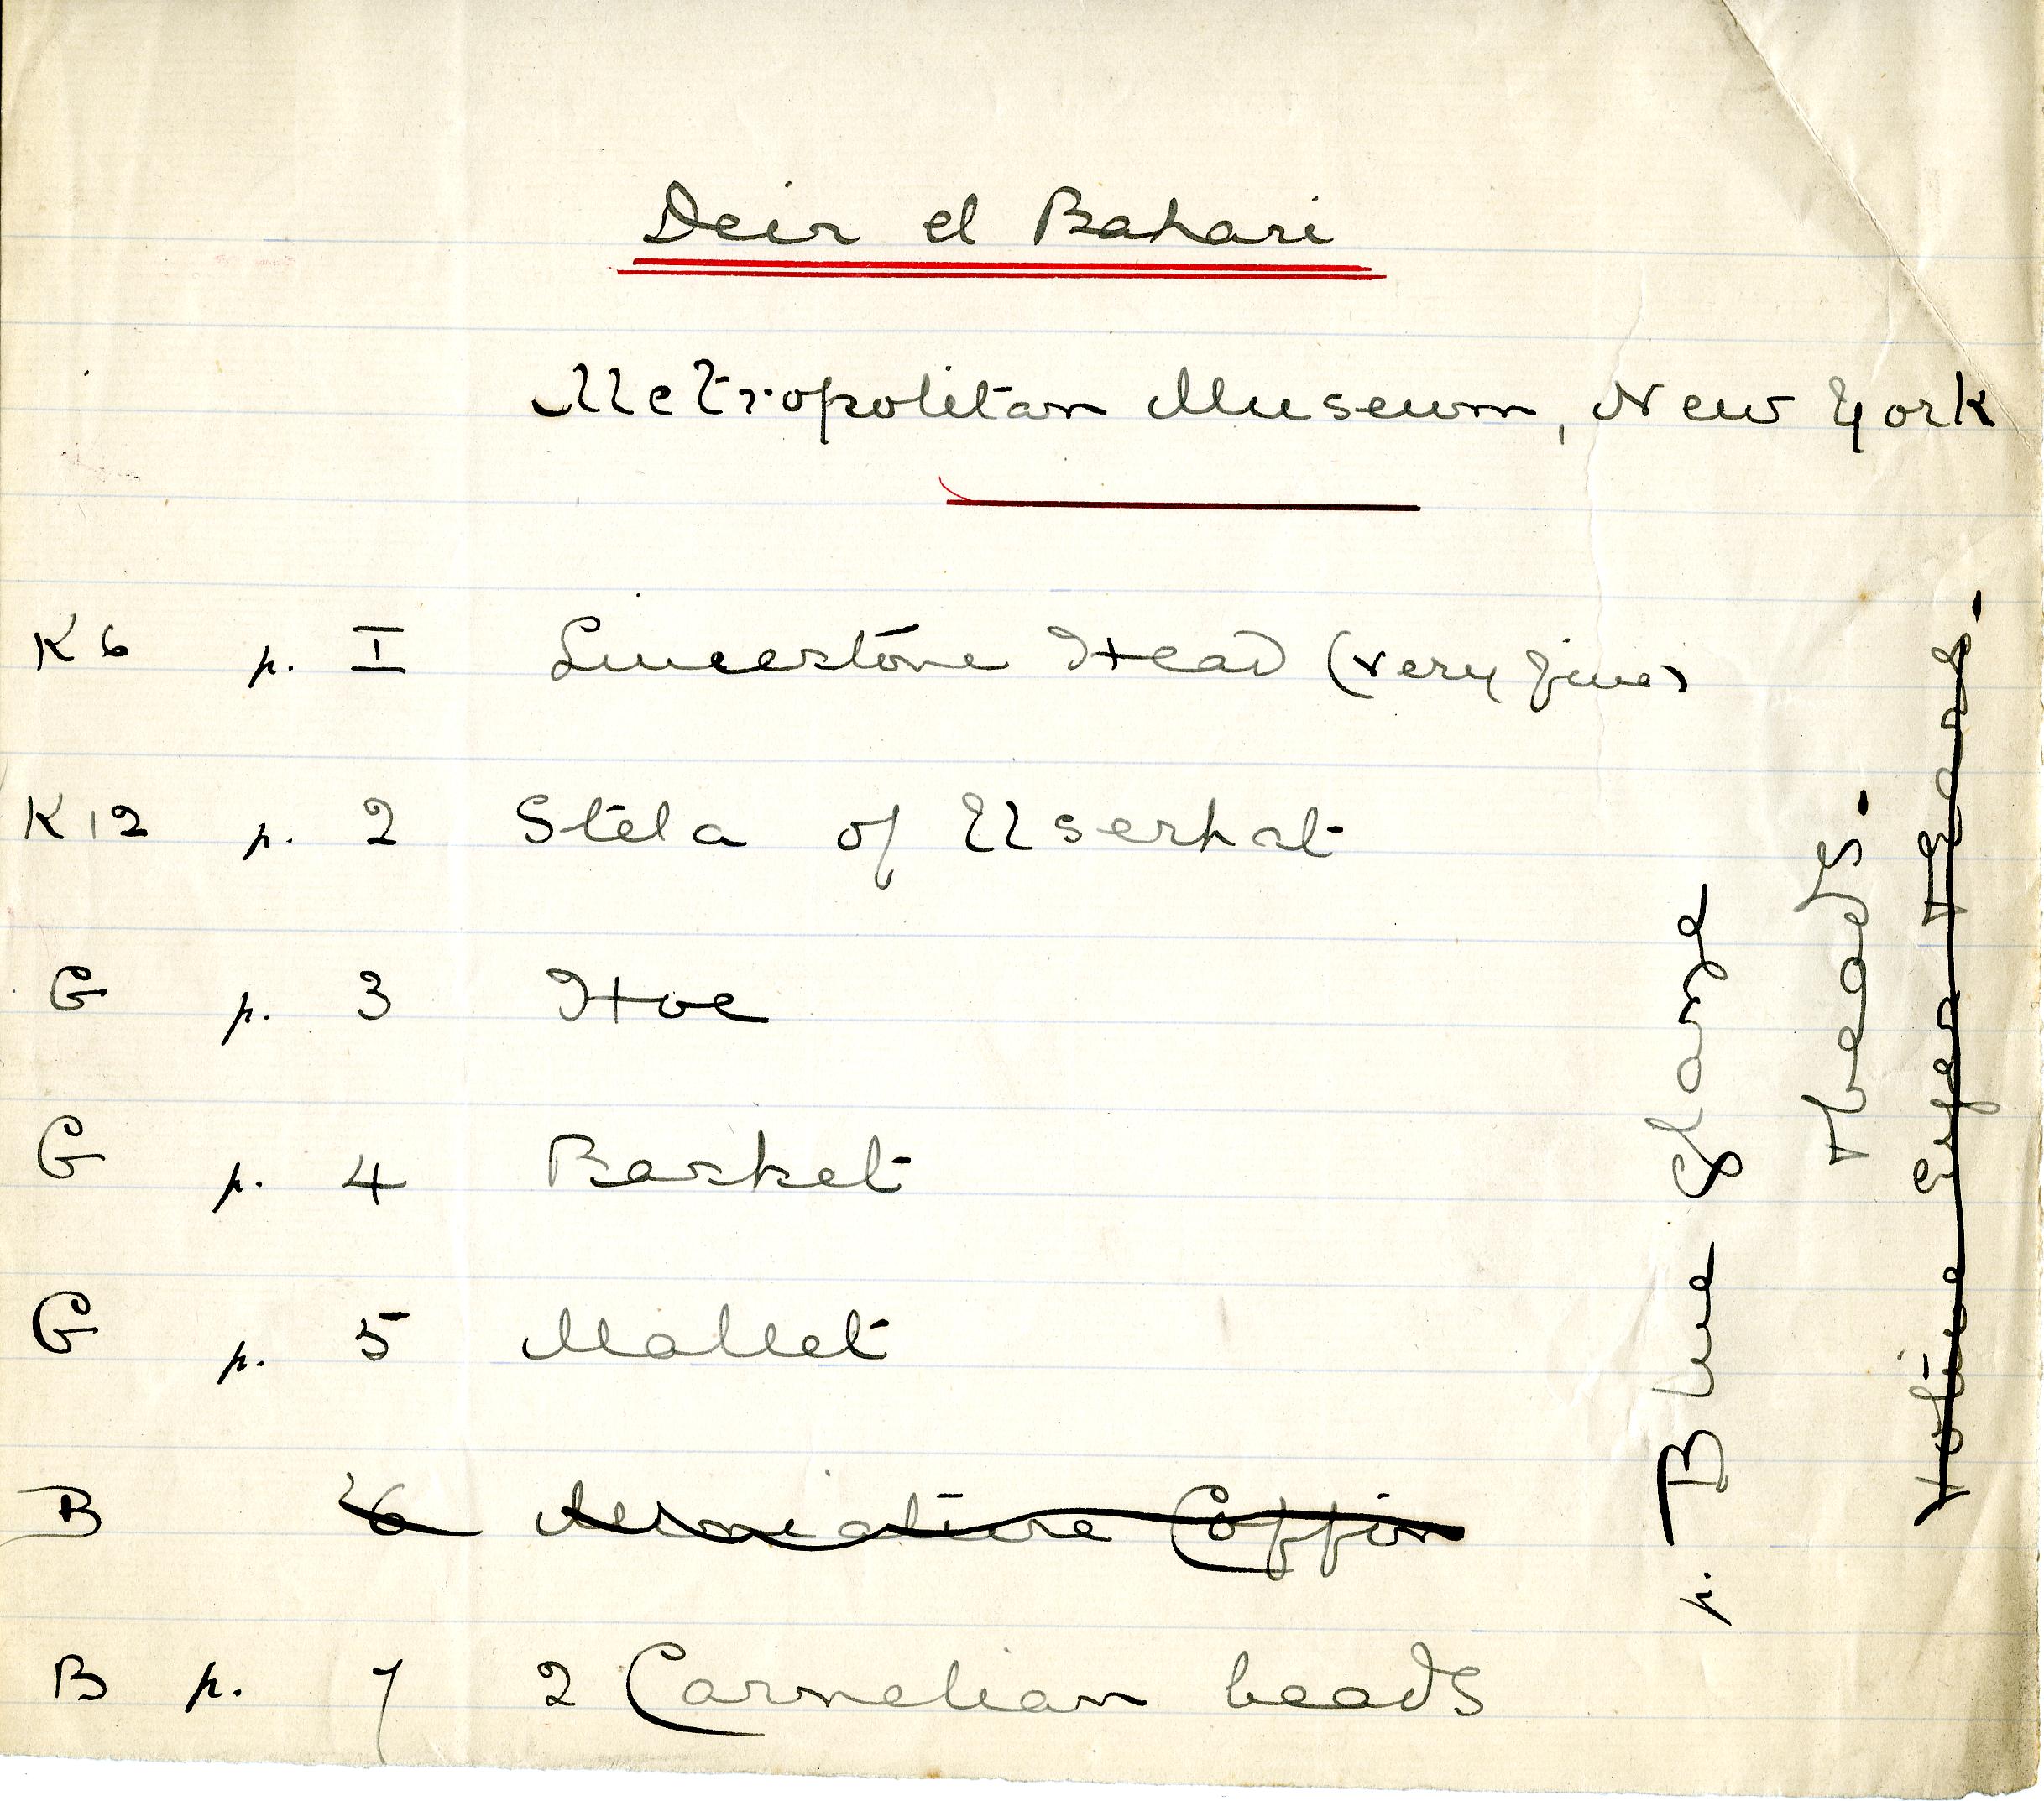 Deir el Bahari
Metropolitan Museum, New York
K6 p. I Limestone Head (very fine)
K12 p. 2 Stela of Userhat
G p. 3 Hoe
G p. 4 Basket
G p. 5 Mallet
B 6 Miniature Coffin
B p. 7 2 Carnelian beads
p. Blue glaze
beads.
Votive Eyes & Ears.